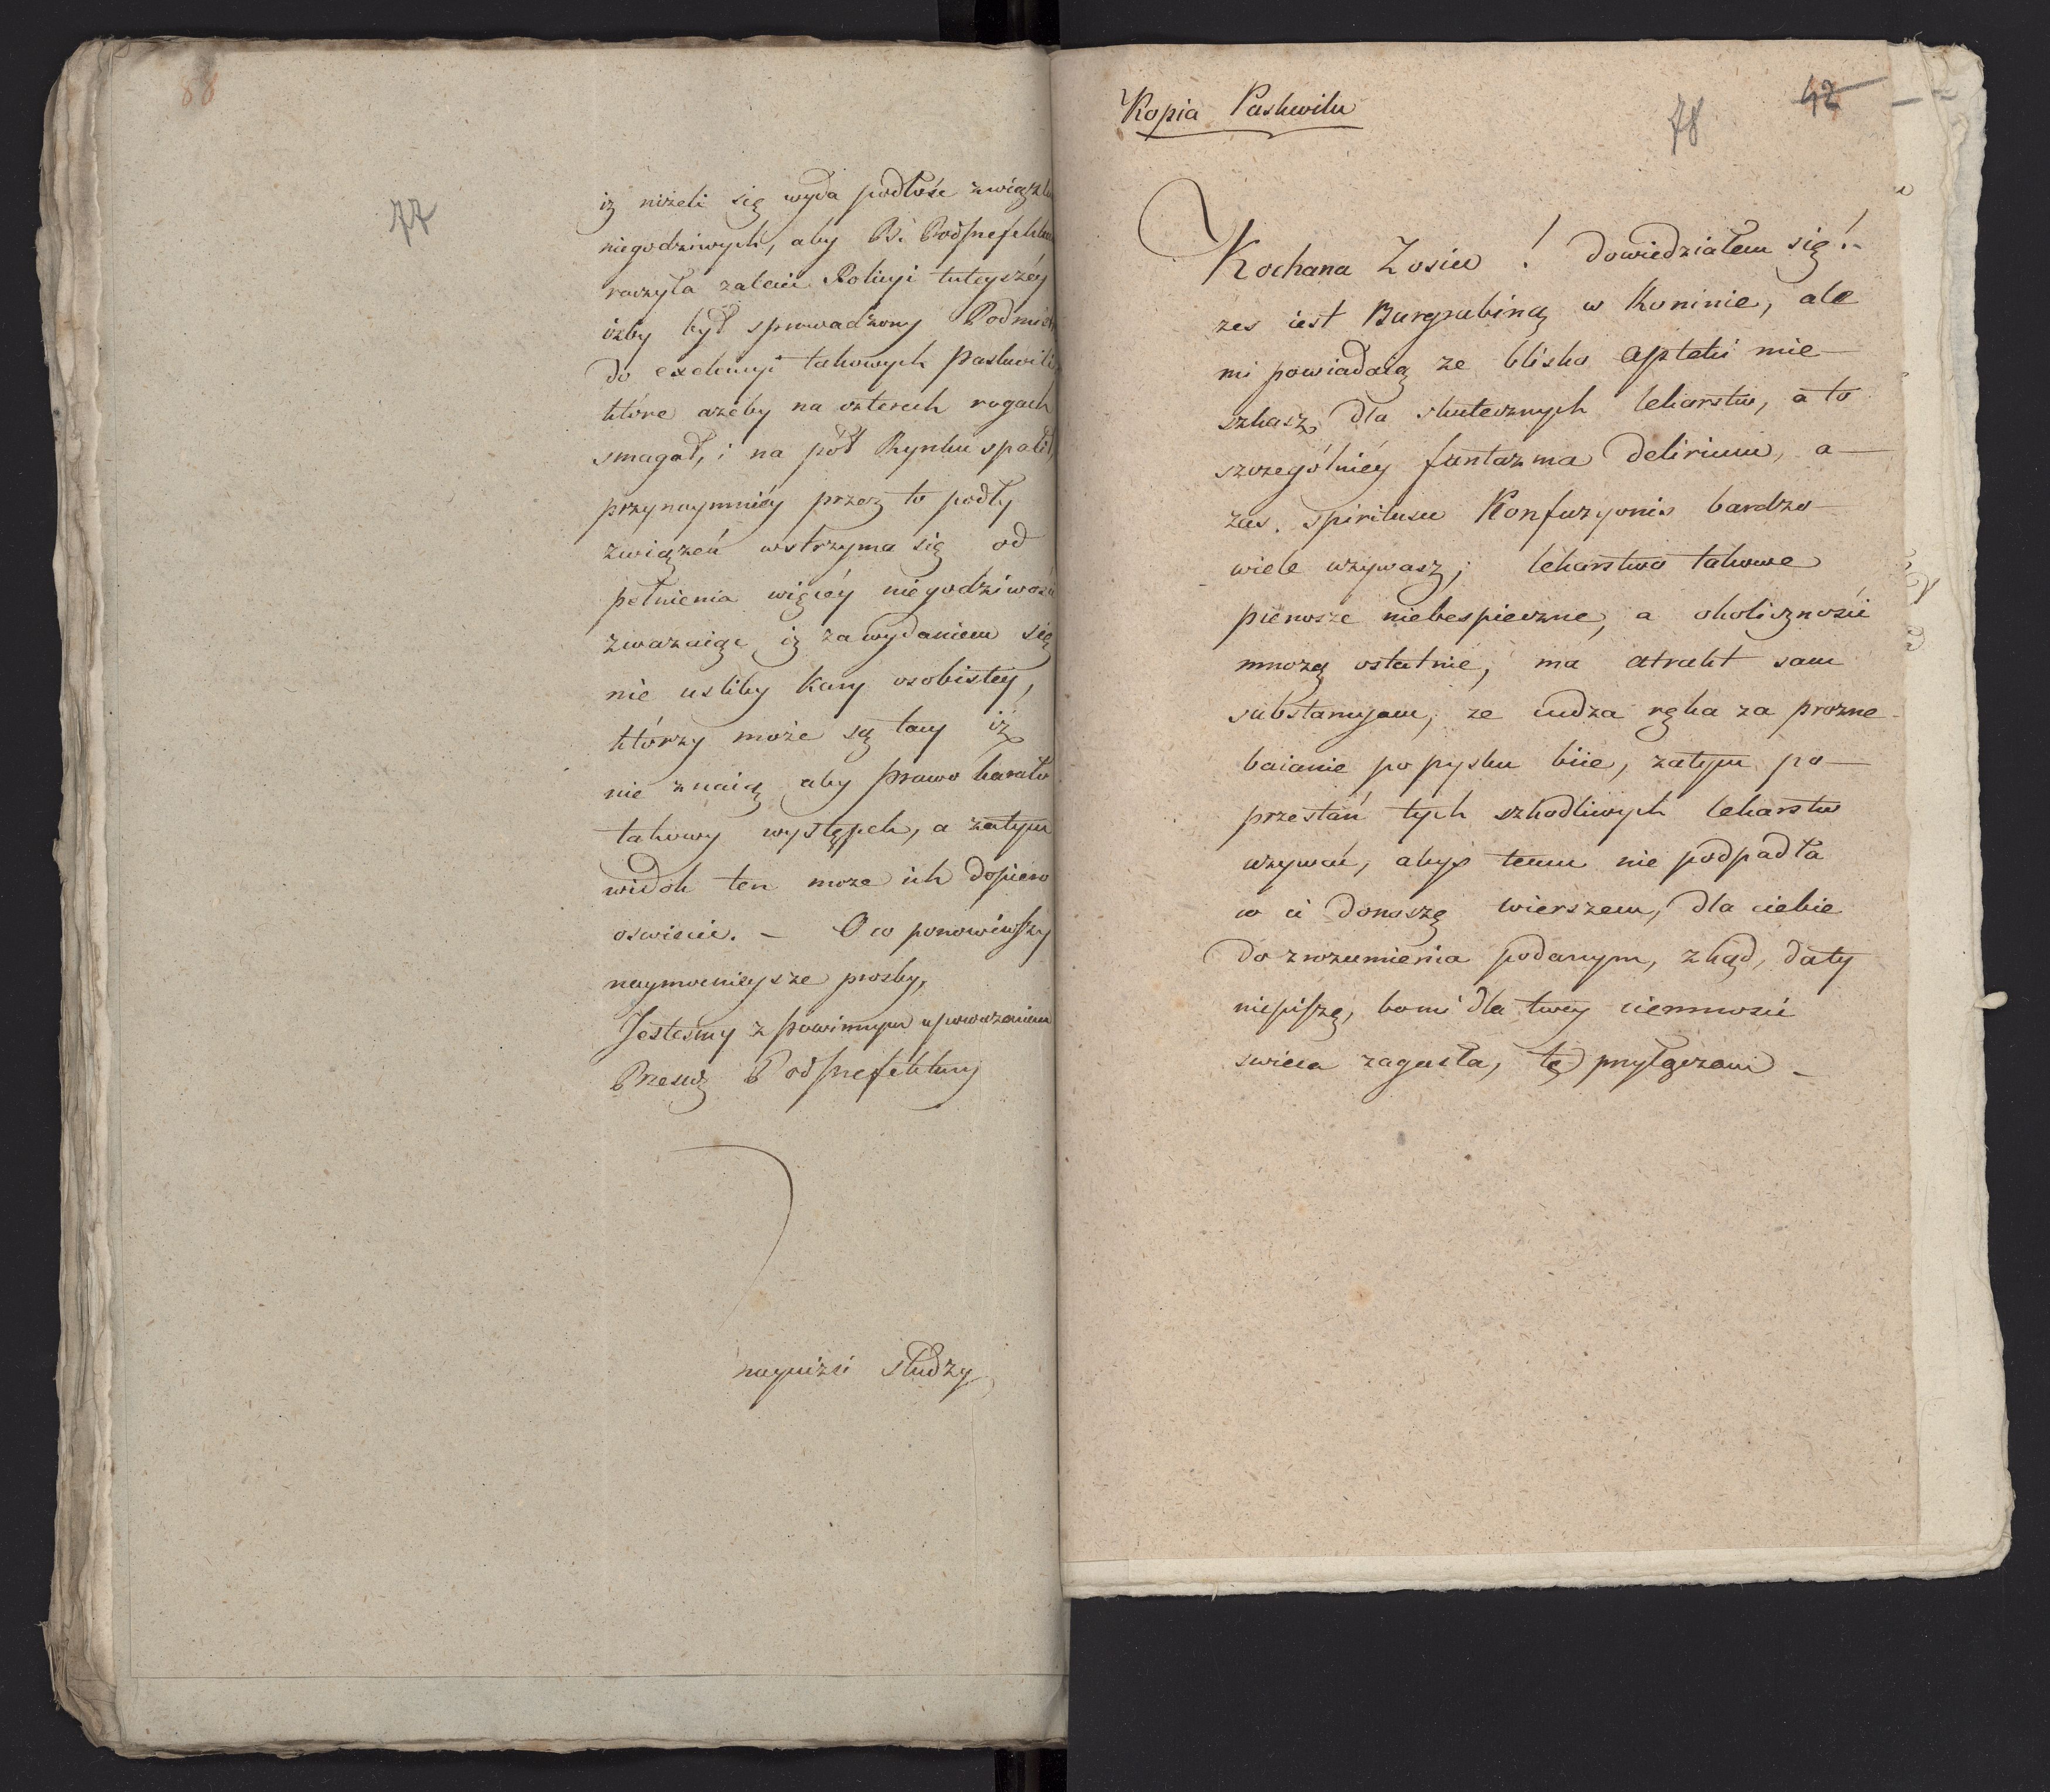 88
77
iż niżeli się wyda podłość związku
niegodziwych, aby Pś: Podprefektura
raczyła zalecić Policyi tuteyszéy
iżby był sprowadzony
do exekucyi takowych paskwili
które ażeby na czterech rogach
smagał, i na pół Rynku spalił,
przynaymniéy przez to podły
związek wstrzyma się od
pełnienia więcéy niegodziwości
zważaiąc iż za wydaniem się
nie uszliby kary osobistey,
którzy może są tacy iż
nie znaią aby prawo karało
takowy występek, a zatym
widok ten może ich dopiero
oswieci. – O co ponowiwszy
naymocnieysze prosby,
Jestesmy z powinnym uszanowaniem
Przesw Podprefektury
nayniżsi słudzy
Kopia Paskwilu
78
42
Kochana Zosiu! dowiedziałem się!
zes iest Burgrabiną w Koninie, ale
mi powiadaią ze blisko apteki mie-
szkasz, dla skutecznych lekarstw, a to
szczególniéy fantazma delirium, a-
zas. spiritusu Konfuzyonis bardzo
wiele uzywasz; lekarstwo takowe
pierwsze niebespieczne, a okoliczności
mnożą ostatnie, ma atrakt sam
substancyam, ze cudza ręka za prozne
baianie po pysku biie, zatym po-
przestań tych szkodliwych lekarstw
uzywać, abyś temu nie podpadła
co ci donoszę wierszem, dla ciebie
do zrozumienia podanym, zkąd, daty
niepiszę, bo mi dla twey ciemności
swieca zagasła, tę przyłączam –